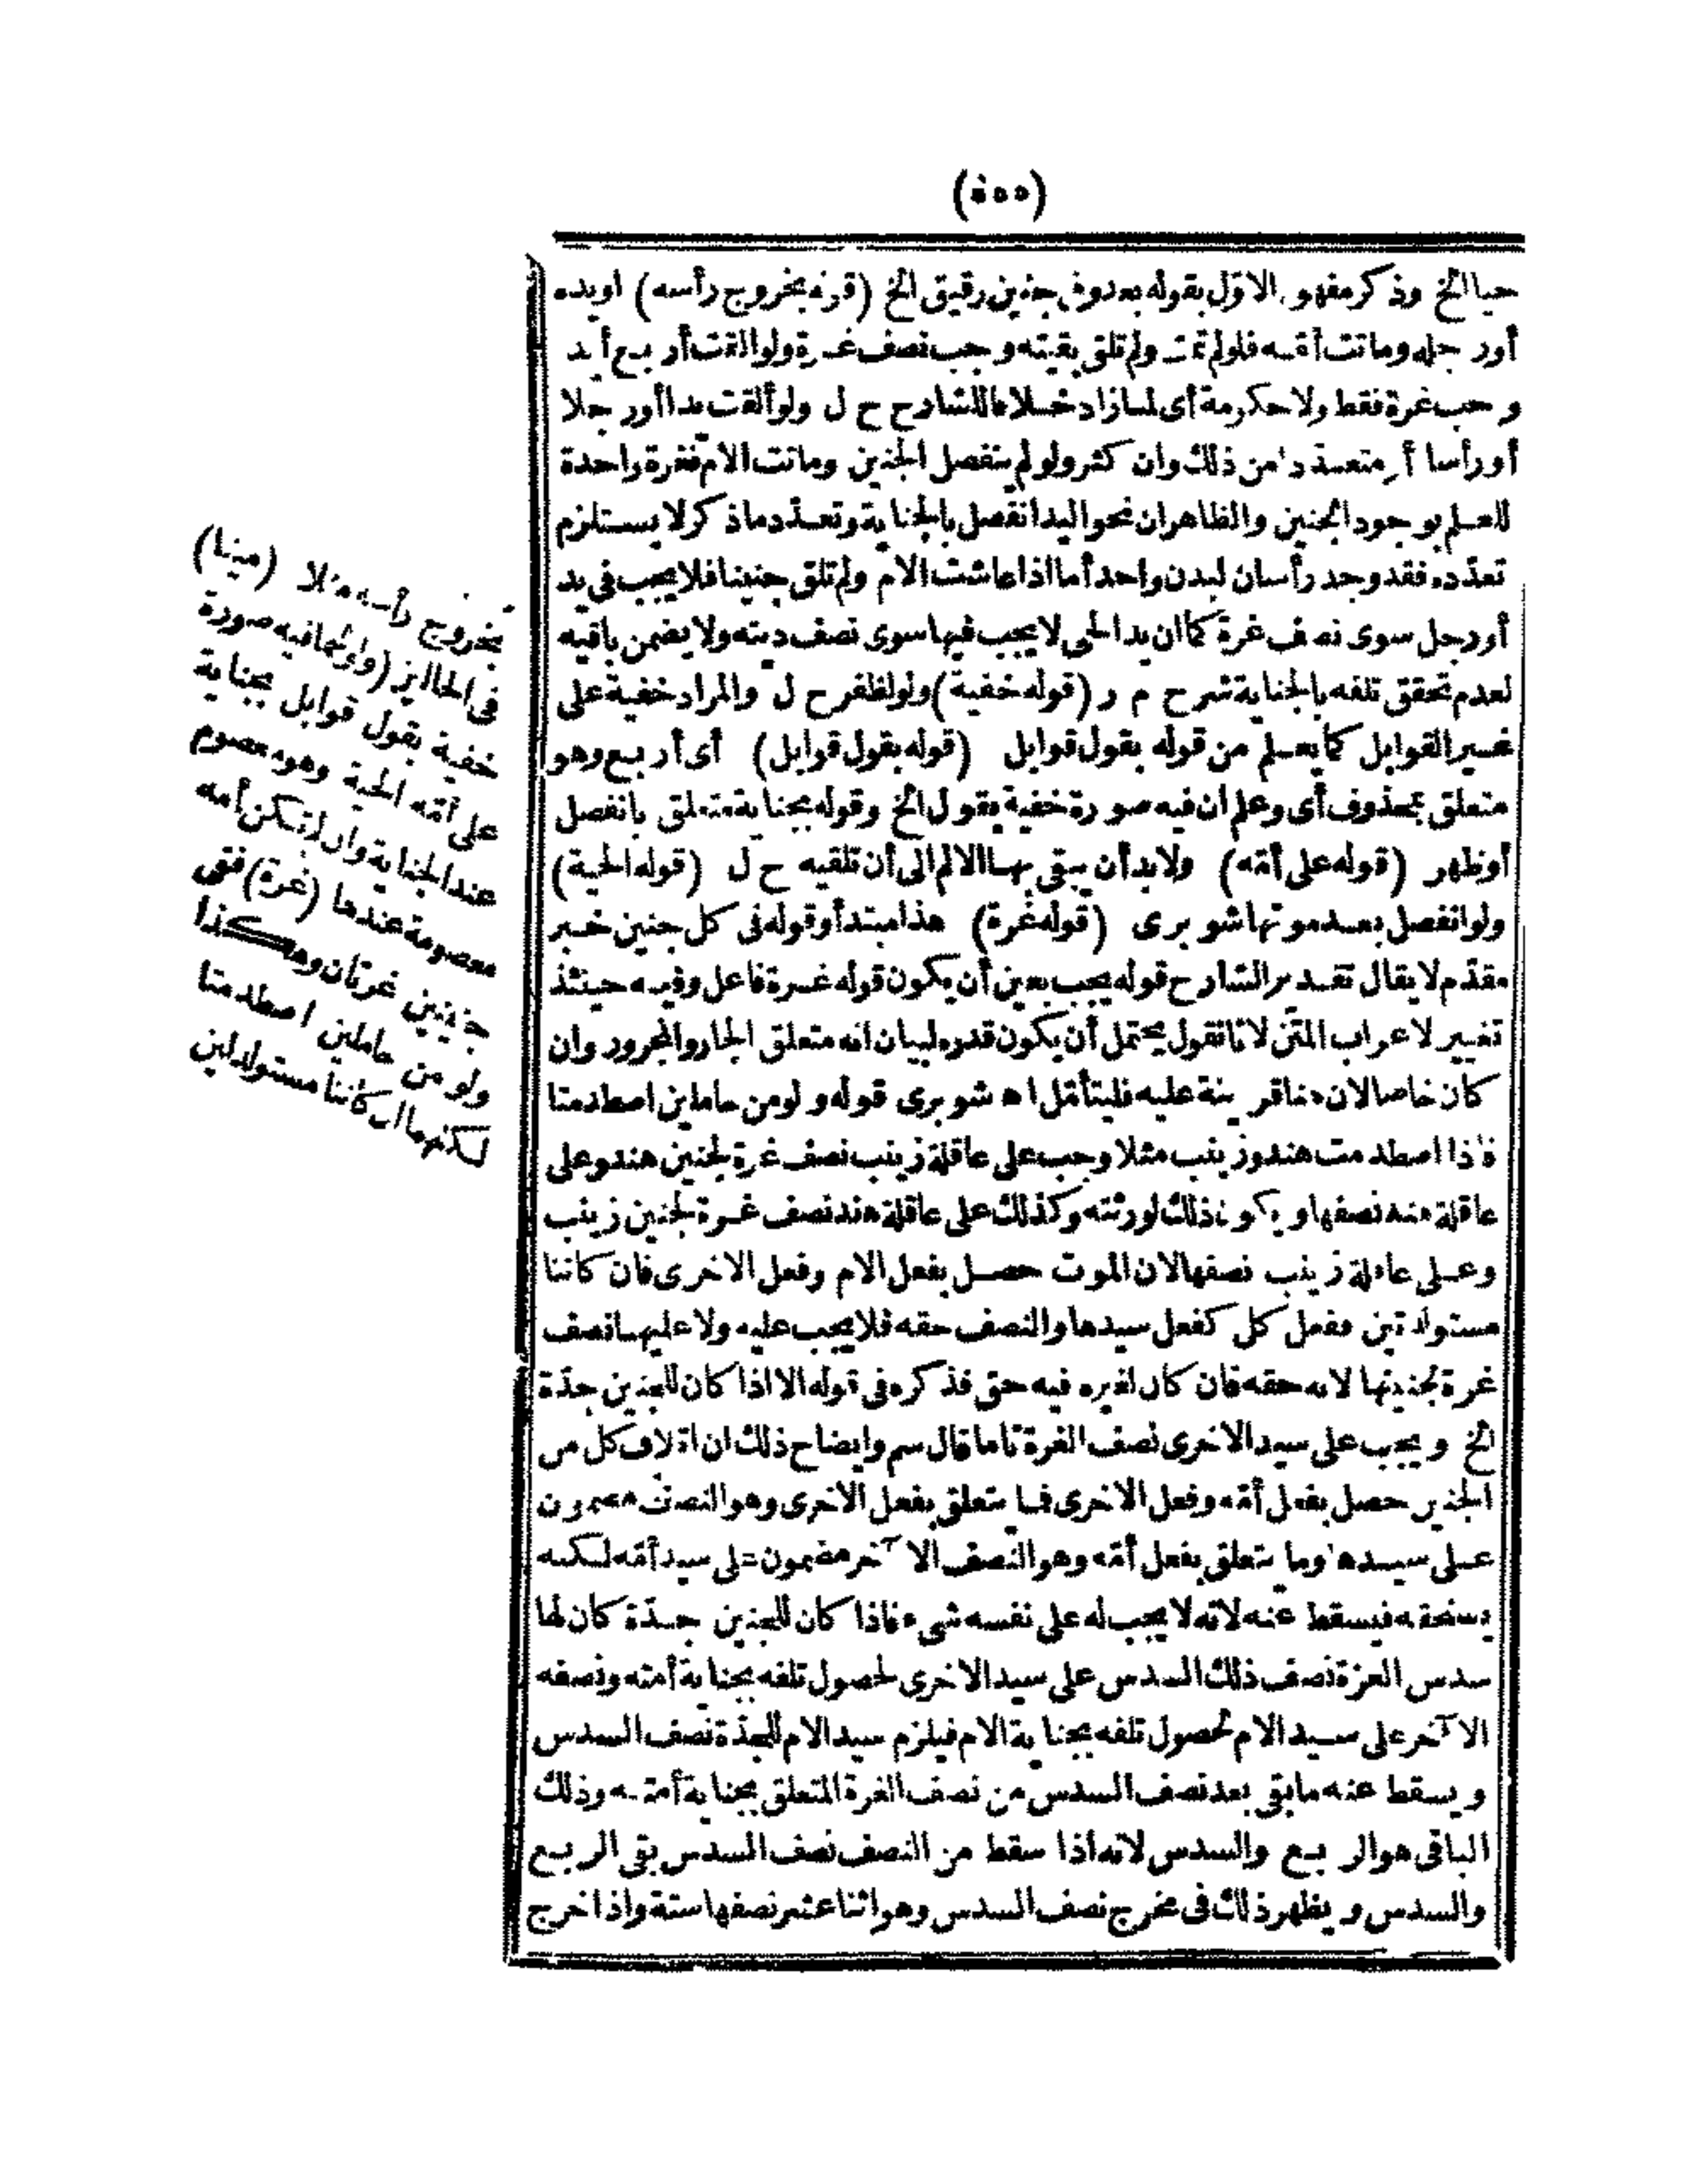 (٥٥٥)
حيا الخ وذكر مفهوم الاوّل بقوله بعد وفى جنين رقيق الخ (قوله بخروج رأسه) اويده
أورجله وماتت أمّه فلولم تمت ولم تلق بقيته وجب نصف غرة ولو ألقت أربع أيد
وجب غرة فقط ولا حكومة أى لما زاد خلافا للشارح ح ل ولو ألقت يدا أورجلا
أورأسا أومتعدّدا من ذلك وان كثر ولو لم ينفصل الجنين وماتت الامّ فغرة واحدة
للعلم بوجود الجنين والظاهر ان نحو اليد انفصل بالجناية وتعدّد ماذكر لا يستلزم
تعدّده فقد وجد رأسان لبدن واحد أما اذا عاشت الام ولم تلق جنينا فلا يجب فى يد
أورجل سوى نصف غرة كما ان يد الحى لا يجب فيها سوى نصف ديته ولا يضمن باقيه
لعدم تحقق تلفه بالجناية شرح م ر (قوله خفية) ولو لظفر ح ل والمراد خفية على
غير القوابل كما يعلم من قوله بقول قوابل (قوله بقول قوابل) أى أربع وهو
متعلق بمحذوف أى وعلم ان فيه صورة خفية بقول الخ وقوله بجناية متعلق بانفصل
أوظهر (قوله على أمّه) ولابد أن يبقى بها الالم الى أن تلقيه ح ل (قوله الحية)
ولو انفصل بعد موتها شوبرى (قوله غرة) هذا مبتدأ وقوله فى كل جنين خبر
مقدّم لا يقال تقدير الشارح قوله يجب يعين أن يكون قوله غرة فاعل وفيه حينئذ
تغيير لاعراب المتن لانا نقول يحتمل أن يكون قدره لبيان انه متعلق الجار والمجرور وان
كان خاصا لان هنا قرينة عليه فليتأمّل ا ه شوبرى قوله ولو من حاملين اصطدمتا
فاذا اصطدمت هند وزينب مثلا وجب على عاقلة زينب نصف غرة لجنين هند وعلى
عاقلة هند نصفها ويكون ذلك لورثته وكذلك على عاقلة هند نصف غرة لجنين زينب
وعلى عاقلة زينب نصفها لان الموت حصل بفعل الام وفعل الاخرى فان كانتا
مستولدتين ففعل كل كفعل سيدها والنصف حقه فلا يجب عليه ولا عليها نصف
غرة لجنينها لانه حقه فان كان لغيره فيه حق فذكره فى قوله الا اذا كان للجنين جدّة
الخ ويجب على سيد الاخرى نصف الغرة تاما قال سم وايضاح ذلك ان اتلاف كل من
الجنين حصل بفعل أمّه وفعل الاخرى فما يتعلق بفعل الاخرى وهو النصف مضمون
على سيدها وما يتعلق بفعل أمّه وهو النصف الا ٓخر مضمون على سيد أمّه لكنه
يستحقه فيسقط عنه لانه لا يجب له على نفسه شىء فاذا كان للجنين جدّة كان لها
سدس الغرة نصف ذلك السدس على سيد الاخرى لحصول تلفه بجناية أمته ونصفه
الا ٓخر على سيد الام لحصول تلفه بجناية الام فيلزم سيد الام للجدّة نصف السدس
ويسقط عنه ما بقى بعد نصف السدس من نصف الغرة المتعلق بجناية أمته وذلك
الباقى هو الربع والسدس لانه اذا سقط من النصف نصف السدس بقى الربع
والسدس ويظهر ذلك فى مخرج نصف السدس وهو اثنا عشر نصفها ستة واذا خرج
بخروج رأسه مثلا (ميتا)
فى الحالين (ولو لحما فيه صورة
خفية بقول قوابل بجناية
على أمّه الحية وهو معصوم
عند الجناية وان لم تكن أمه
معصومة عندها (غرة) ففى
جنينين غرتان وهكذا
ولو من حاملين اصطدمتا
لكنهما ان كانتا مستولدتين